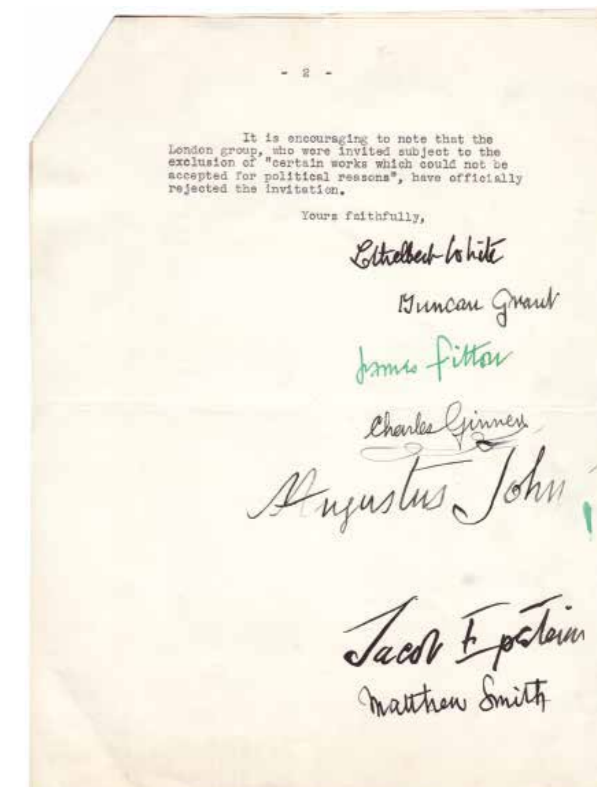 - 2 -
It is encouraging to note that the
London group, who were invited subject to the
exclusion of "certain works which could not be
accepted for political reasons", have officially
rejected the invitation.
Yours faithfully,
Ethelbert White
Duncan Grant
James Fitton
Charles Ginner.
Augustus John
Jacob Epstein
Matthew Smith